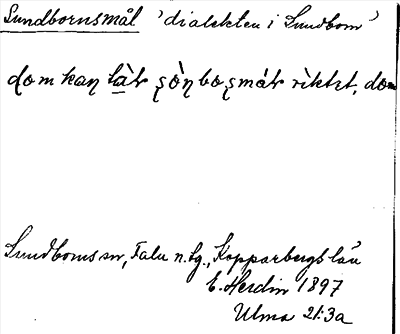 Sundbornsmål 'dialekten i Sundborn'
dom kan làr sònbosmár rìktet, dom
Sundborns sn, Falu n. tg., Kopparbergs län
E. Herdin 1897
Ulma 21:3a